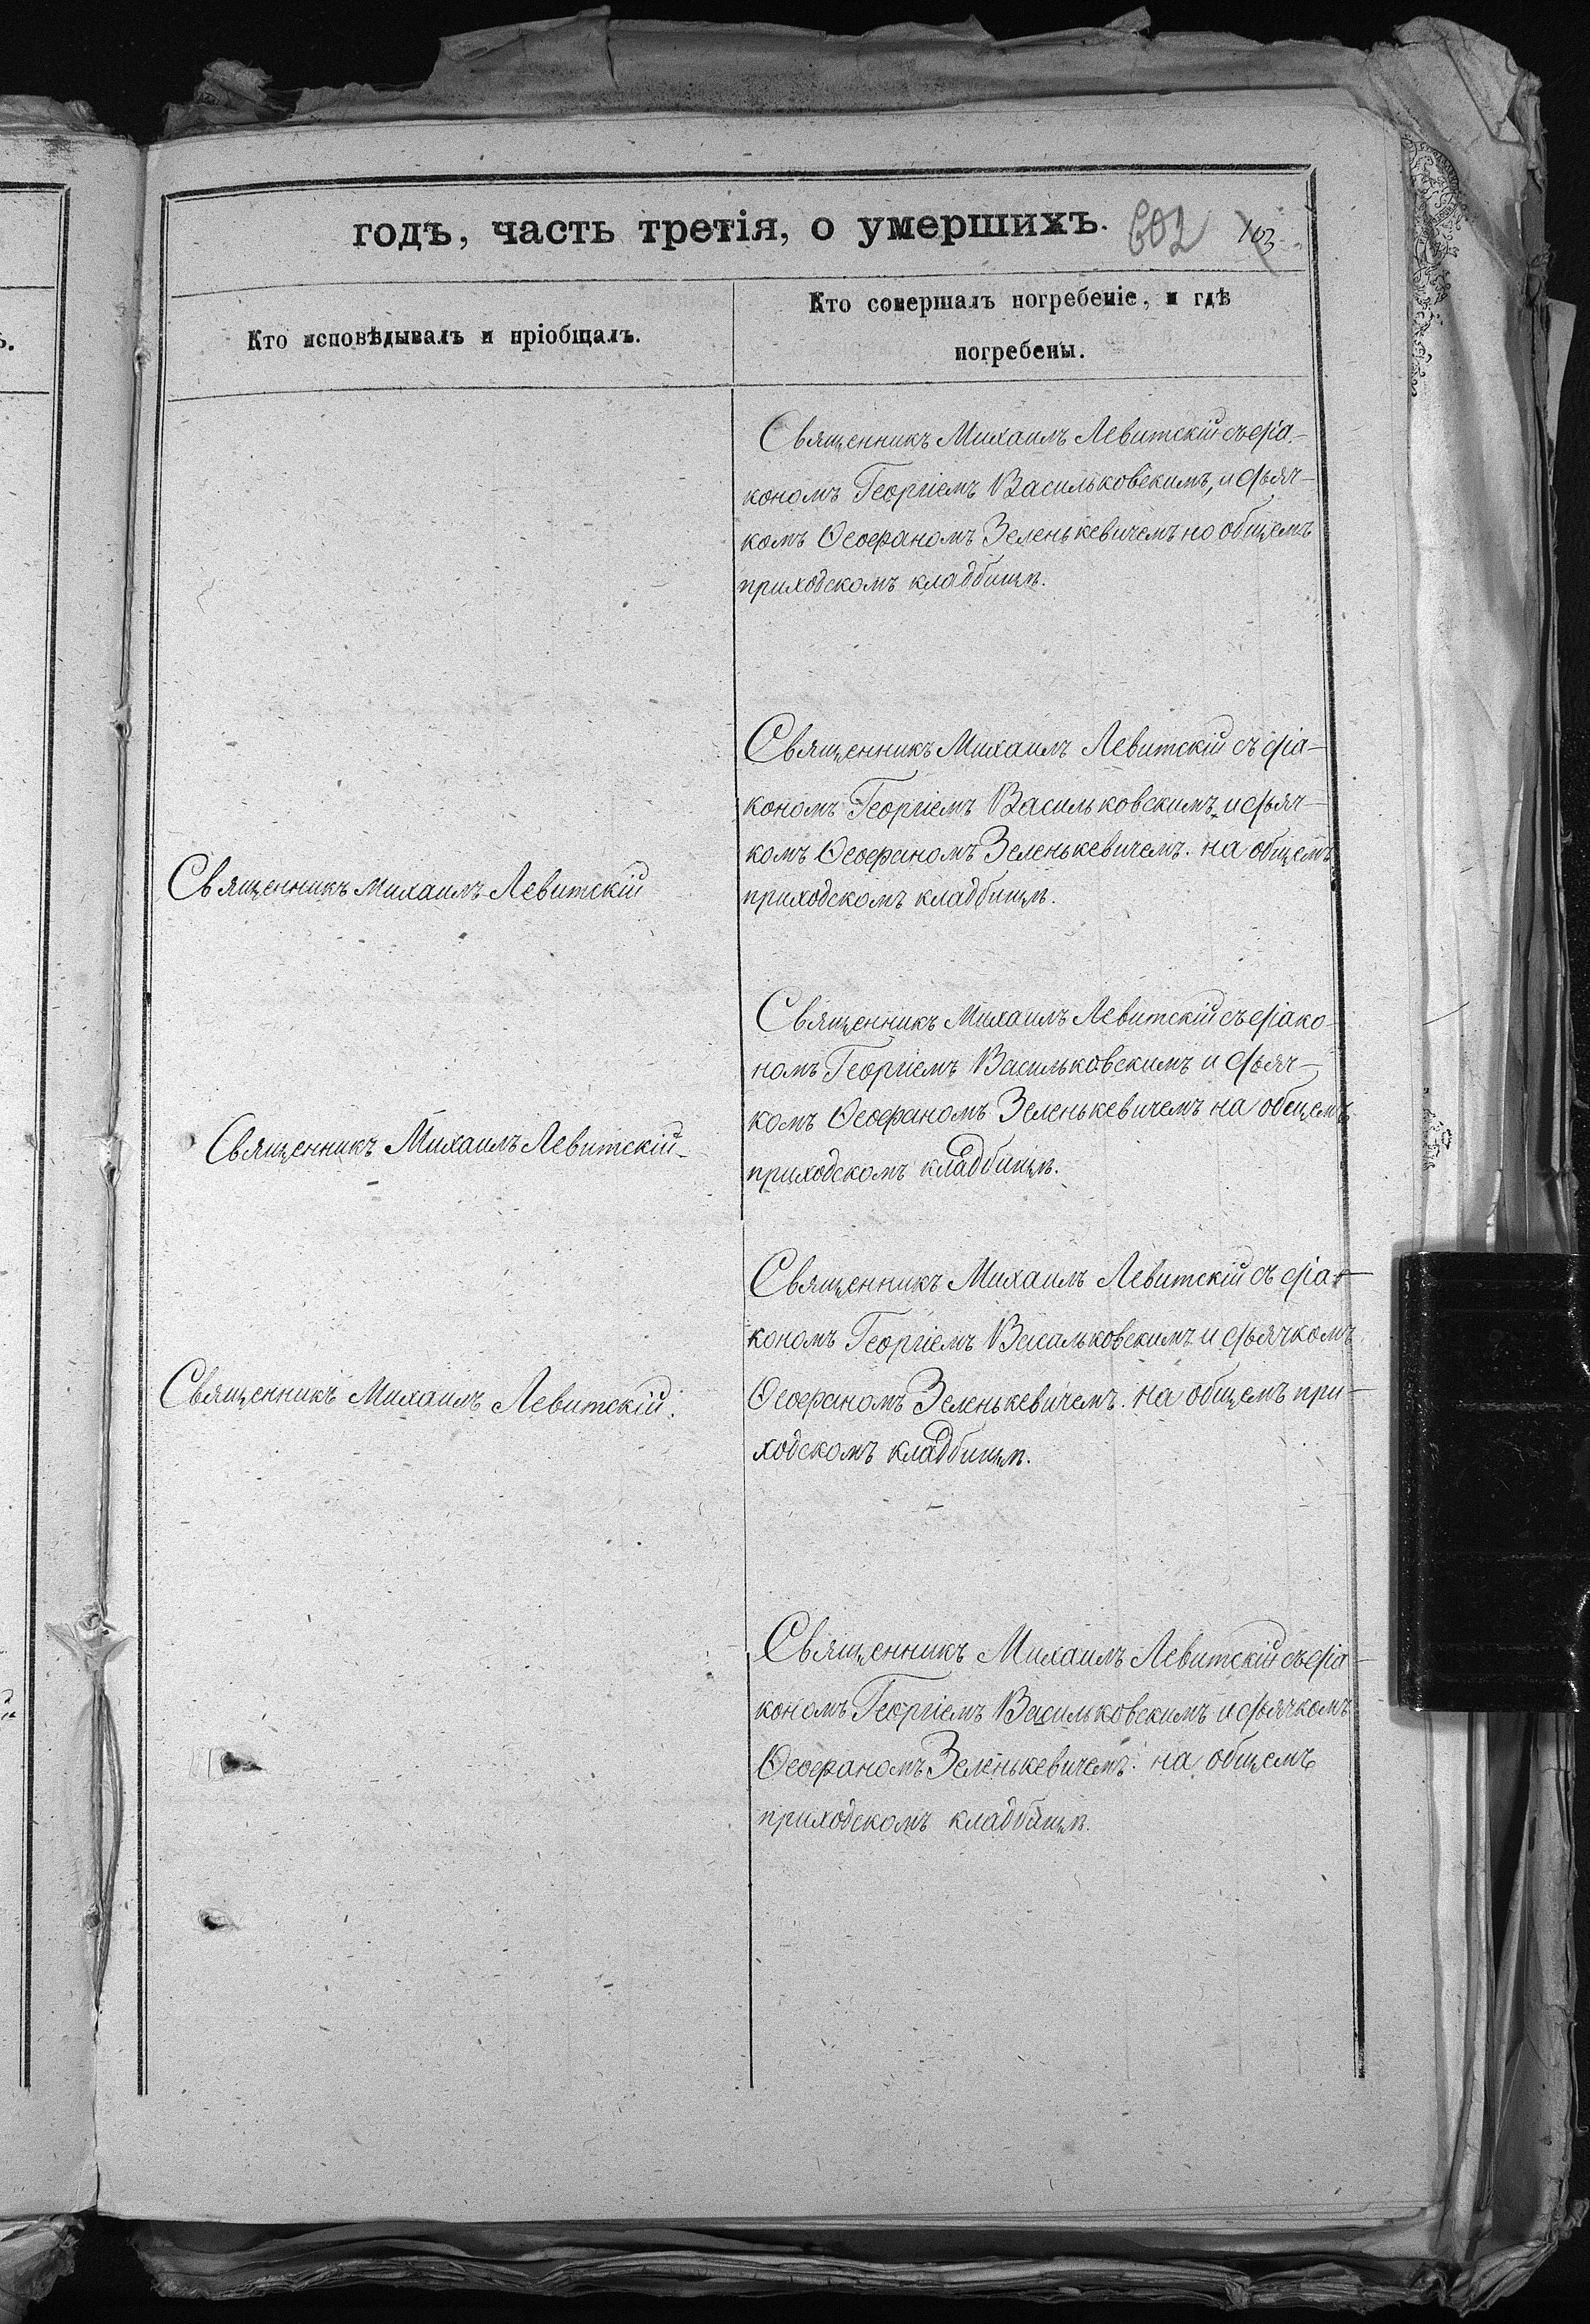 годъ, часть третія, о умершихъ. 602 103
Кто исповѣдывалъ и пріобщалъ.
Кто совершалъ погребеніе, и гдѣ
погребены.
Священникъ Михаилъ Левитскій съ діа-
кономъ Георгіемъ Васильковскимъ, и дьяч-
комъ Ѳеофаномъ Зеленькевичемъ но общемъ
приходскомъ кладбищѣ.
Священникъ Михаилъ Левитскій
Священникъ Михаилъ Левитскій съ діа-
кономъ Георгіемъ Васильковскимъ и дьяч-
комъ Ѳеофаномъ Зеленькевичемъ. на общемъ
приходскомъ кладбищѣ.
Священникъ Михаилъ Левитскій
Священникъ Михаилъ Левитскій съ діако-
номъ Георгіемъ Васильковскимъ и дьяч-
комъ Ѳеофаномъ Зеленькевичемъ на общемъ
приходскомъ кладбищѣ.
Священникъ Михаилъ Левитскій.
Священникъ Михаилъ Левитскій съ діа-
кономъ Георгіемъ Васильковскимъ и дьячкомъ
Ѳеофаномъ Зеленькевичемъ. на общемъ при-
ходскомъ кладбищѣ.
Священникъ Михаилъ Левитскій съ діа-
кономъ Георгіемъ Васильковскимъ и дьячкомъ
Ѳеофаномъ Зеленькевичемъ на общемъ
приходскомъ кладбищѣ.